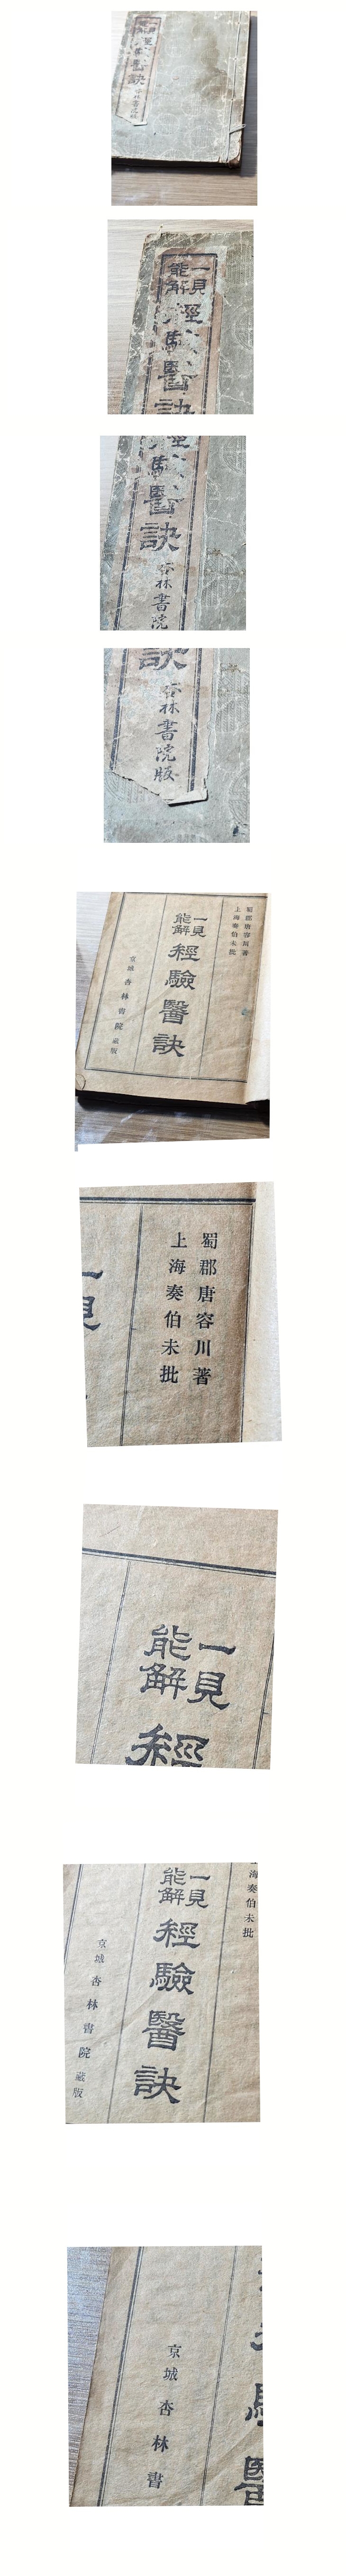 一見
能解
經驗醫訣
杏林書院版
一見
能解
經驗醫訣
驗醫訣
杏林書院
訣
杏林書院版
蜀郡唐容川著
上海奏伯未批
一見
能解
經驗醫訣
京城杏林書院藏版
蜀郡唐容川著
上海奏伯未批
一見
一見
能解
經
海奏伯未批
一見
能解
經驗醫訣
京城杏林書院藏版
驗醫
京城杏林書